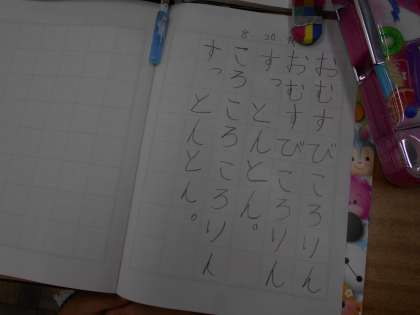 おむすびころりん
おむすびころりん
すっとんとん。
ころころころりん
すっとんとん。